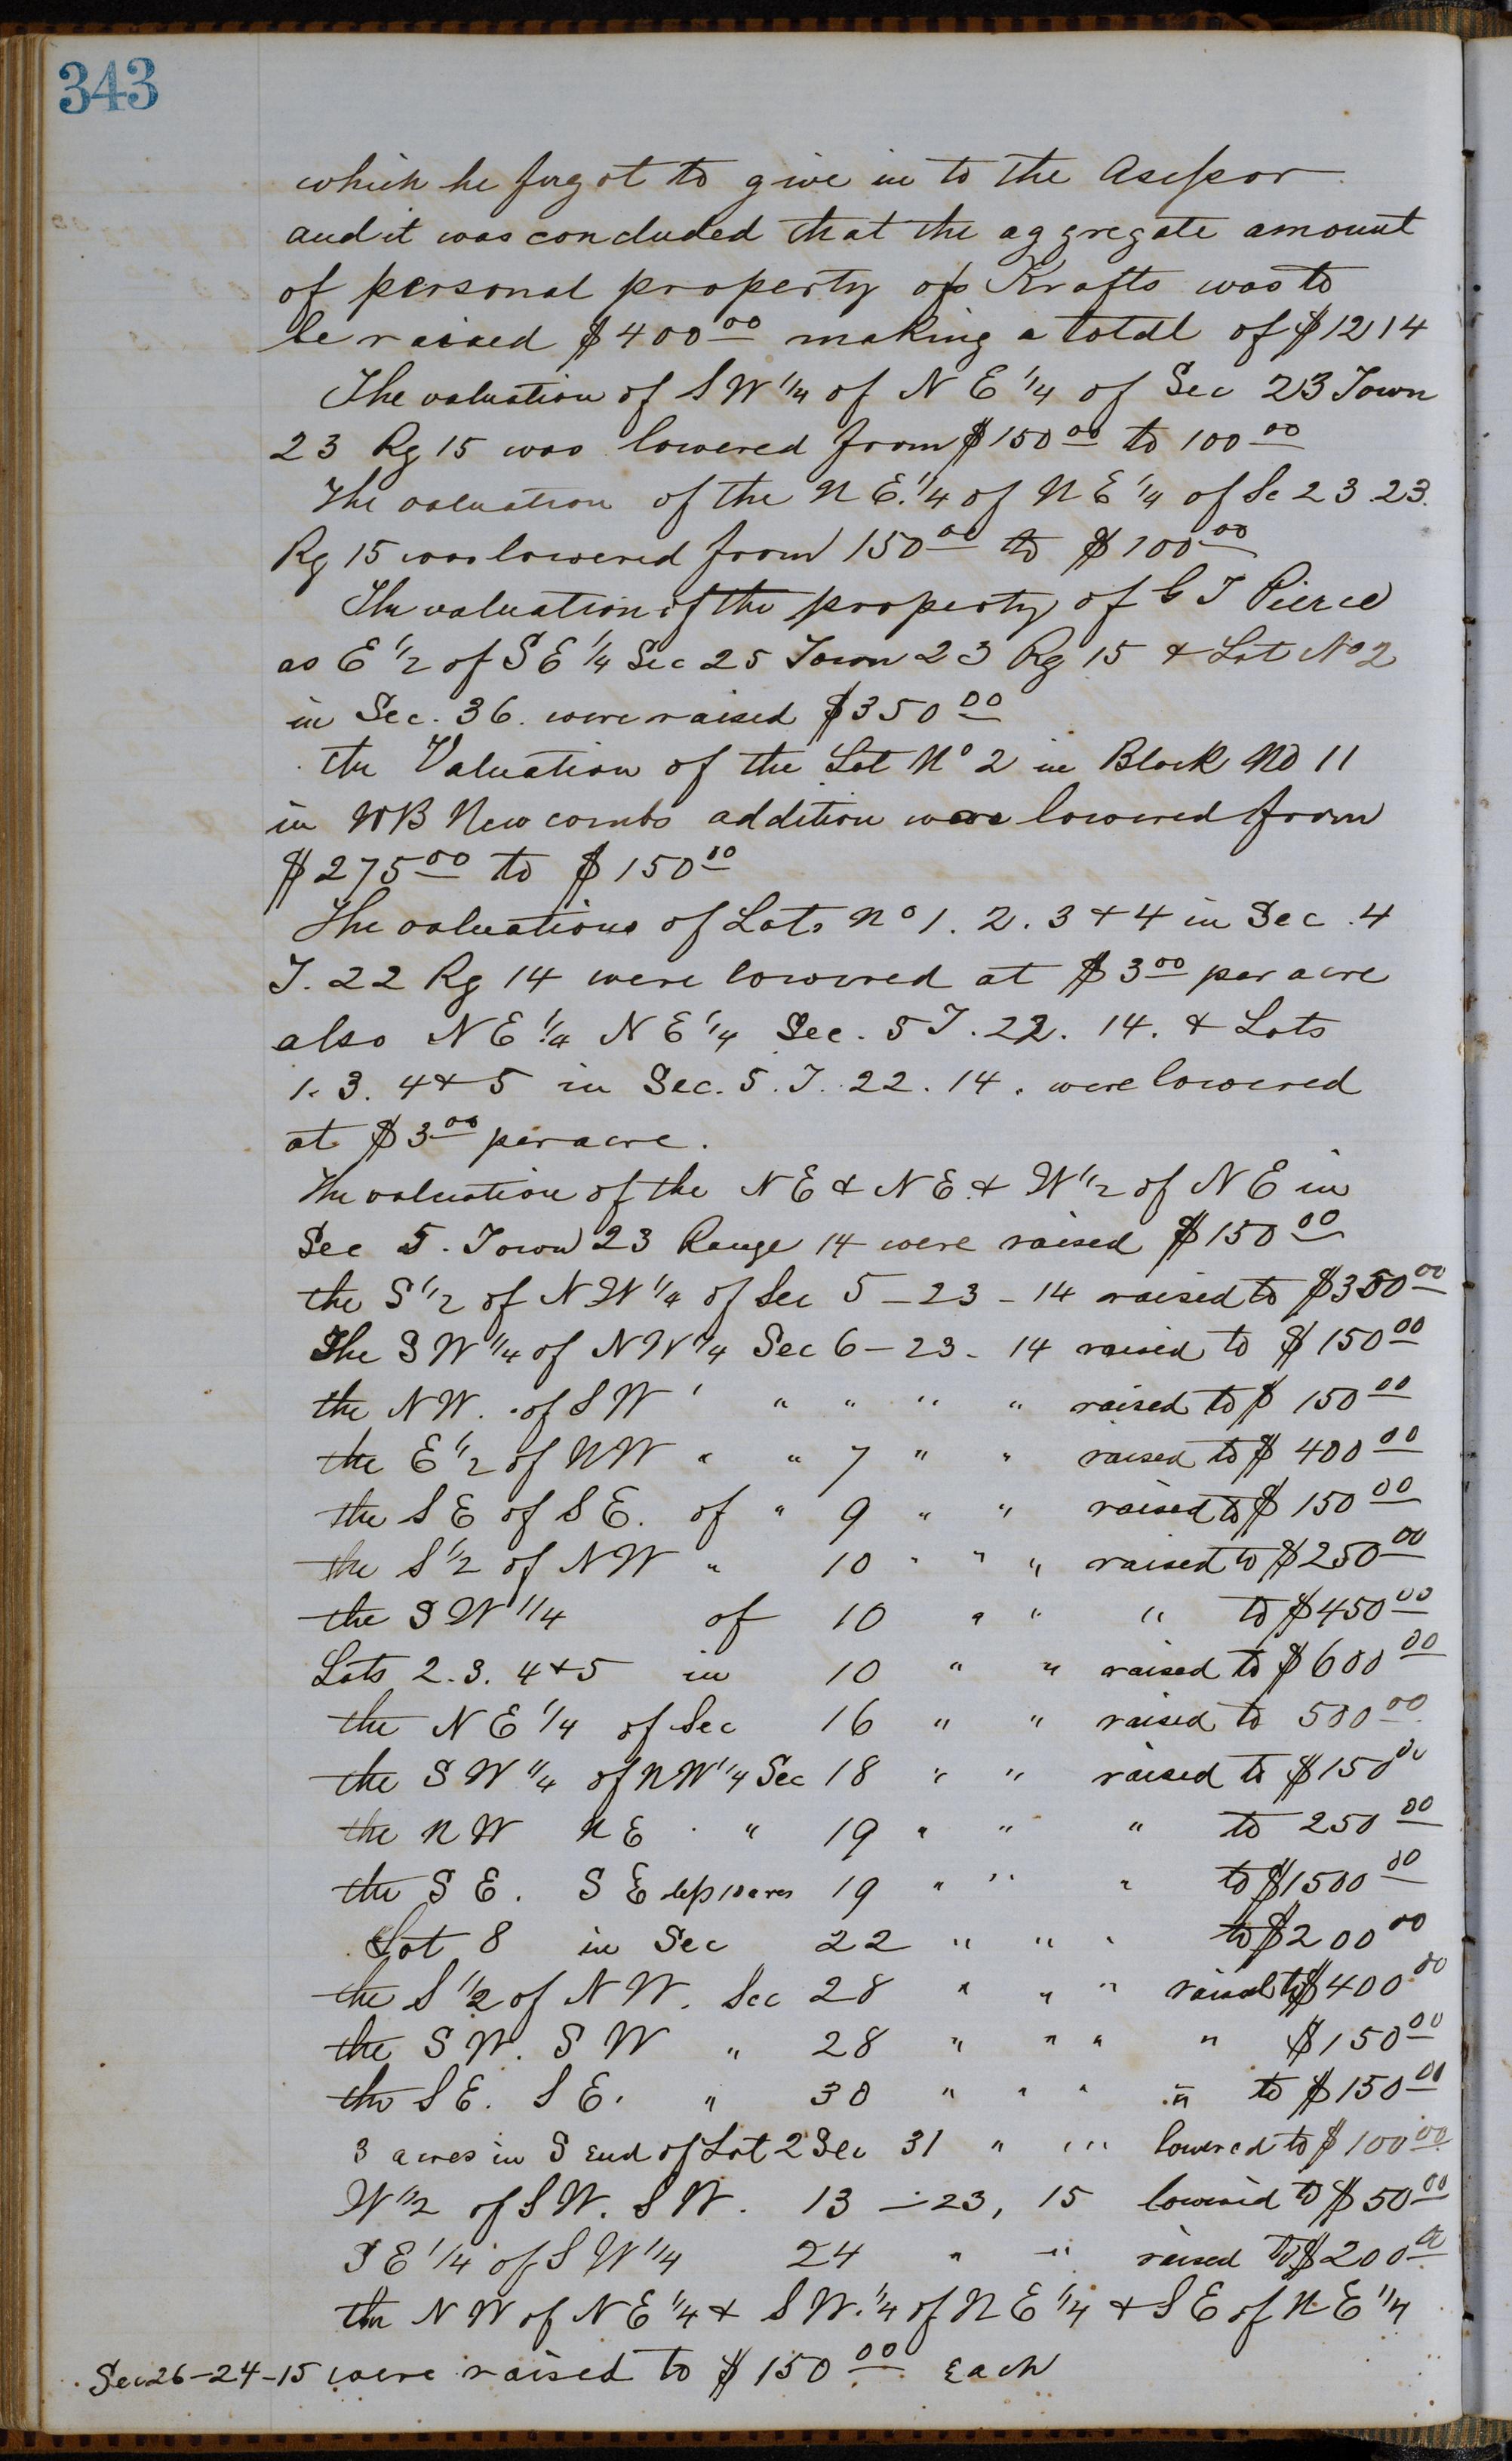 343
which he forgot to give in to the Assessor
and it was concluded that the aggregate amount
of personal property of Krafts was to
be raised $400.00 making a total of $1214
The valuation of SW 1/4 of N E 1/4 of Sec 23 Town
23 Rg 15 was lowered from $150.00 to 100.00
The valuation of the N E. 1/4 of N E 1/4 of Se 23 23.
Rg 15 was lowered from 150.00 to $100.00
The valuation of the property of G T Pierce
as E 1/2 of S E 1/4 Sec 25 Town 23 Rg 15 & Lot No 2
in Sec. 36. were raised $350.00
the Valuation of the Lot No 2 in Block No 11
in WB Newcombs addition were lowered from
$275.00 to $150.00
The valuations of Lots No 1. 2. 3 & 4 in Sec. 4
T. 22 Rg 14 were lowered at $3.00 per acre
also N E 1/4 N E 1/4 Sec. 5 T. 22. 14. & Lots
1. 3. 4 & 5 in Sec. 5. T. 22. 14. were lowered
at $3.00 per acre.
The valuation of the N E & N E. & W 1/2 of N E in
Sec 5. Town 23 Range 14 were raised $150.00
the S 1/2 of N W 1/4 of Sec 5 - 23 - 14 raised to $350.00
The S W 1/4 of N W 1/4 Sec 6 - 23 - 14 raised to $150.00
the N W. of S W ' " " " " raised to $150.00
the E 1/2 of N W " " 7 " " raised to $400.00
the S E of S E. of " 9 " " raised to $150.00
the S 1/2 of N W " 10 " " " raised to $250.00
the S W 1/4 of 10 " " " to $450.00
Lots 2. 3. 4 & 5 in 10 " " raised to $600.00
the N E 1/4 of Sec 16 " " raised to 500.00
the S W 1/4 of N W 1/4 Sec 18 " " raised to $150.00
the N W N E " 19 " " " to 250.00
the S E. S E less 10 acres 19 " " " to $1500.00
Lot 8 in Sec 22 " " " to $200.00
the S 1/2 of N W. Sec 28 " " " raised to $400.00
the S W. S W " 28 " " " " $150.00
the S E. S E. " 30 " " " " to $150.00
3 acres in S End of Lot 2 Sec 31 " " lowered to $100.00
W 1/2 of S W. S W. 13 - 23, 15 lowered to $50.00
S E 1/4 of S W 1/4 24 " " raised to $200.00
the N W of N E 1/4 & S W. 1/4 of N E 1/4 & S E of N E 1/4
Sec 26-24-15 were raised to $150.00 Each